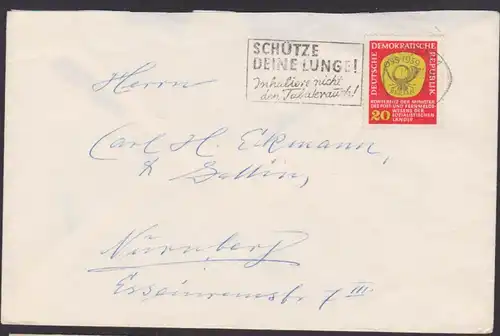 SCHÜTZE
DEINE LUNGE!
Inhaliere nicht
den Tabakrauch!
DEUTSCHE DEMOKRATISCHE REPUBLIK
KONFERENZ DER MINISTER
FÜR POST UND FERNMELDE-
WESENS DER
SOZIALISTISCHEN
LÄNDER
20
Herrn
Carl H. Eckmann,
& Gattin,
Nürnberg
7 III